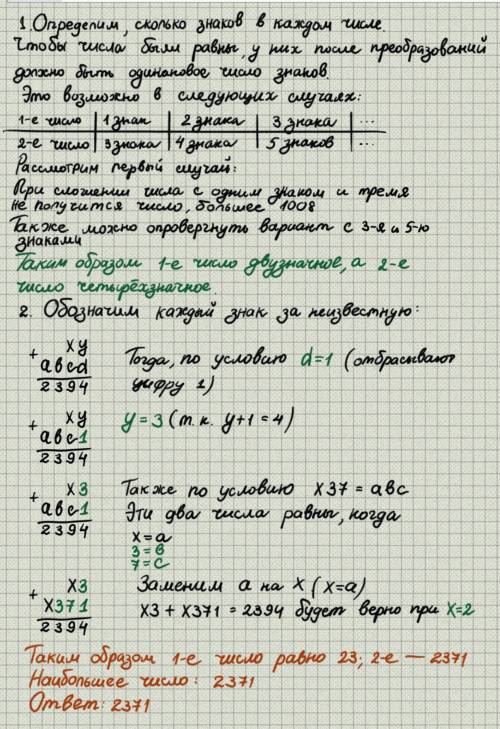 1. Определим, сколько знаков в каждом числе.
Чтобы числа были равны, у них после преобразований
должно быть одинаковое число знаков.
Это возможно в следующих случаях:
1-е число | 1 знак | 2 знака | 3 знака | ...
2-е число | 3 знака | 4 знака | 5 знаков | ...
Рассмотрим первый случай:
При сложении числа с одним знаком и тремя
не получится число, большее 1008
Также можно опровергнуть вариант с 3-я и 5-ю
знаками
Таким образом 1-е число двузначное, а 2-е
число четырёхзначное.
2. Обозначим каждый знак за неизвестную:
+ xy
abcd
2394
Тогда, по условию d=1 (отбрасывают
цифру 1)
+ xy
abc1
2394
y=3 (т.к. y+1=4)
+ x3
abc1
2394
Также по условию x37 = abc
Эти два числа равны, когда
x=a
3=b
7=c
+ x3
x371
2394
Заменим a на x (x=a)
x3 + x371 = 2394 будет верно при x=2
Таким образом 1-е число равно 23; 2-е — 2371
Наибольшее число: 2371
Ответ: 2371